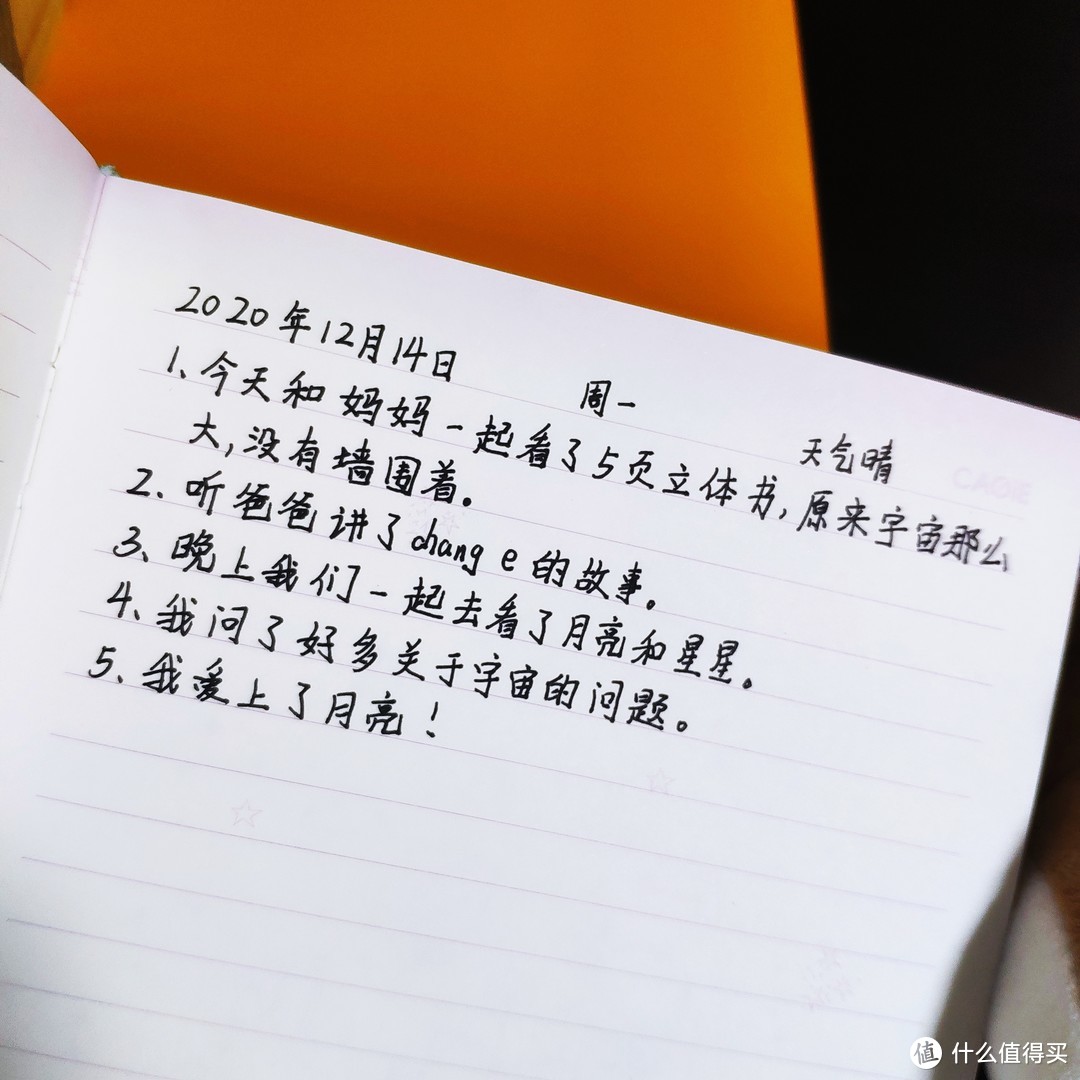 2020年12月14日 周一 天气晴
1、今天和妈妈一起看了5页立体书,原来宇宙那么
大,没有墙围着。
2、听爸爸讲了chang e的故事。
3、晚上我们一起去看了月亮和星星。
4、我问了好多关于宇宙的问题。
5、我爱上了月亮!
CAGIE
值 什么值得买